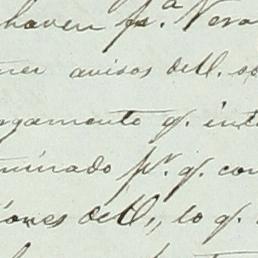 haver pª. Vera
ner avisos dell. so
rgamento q. inte
minado pr. q. con
iones dell., lo q.